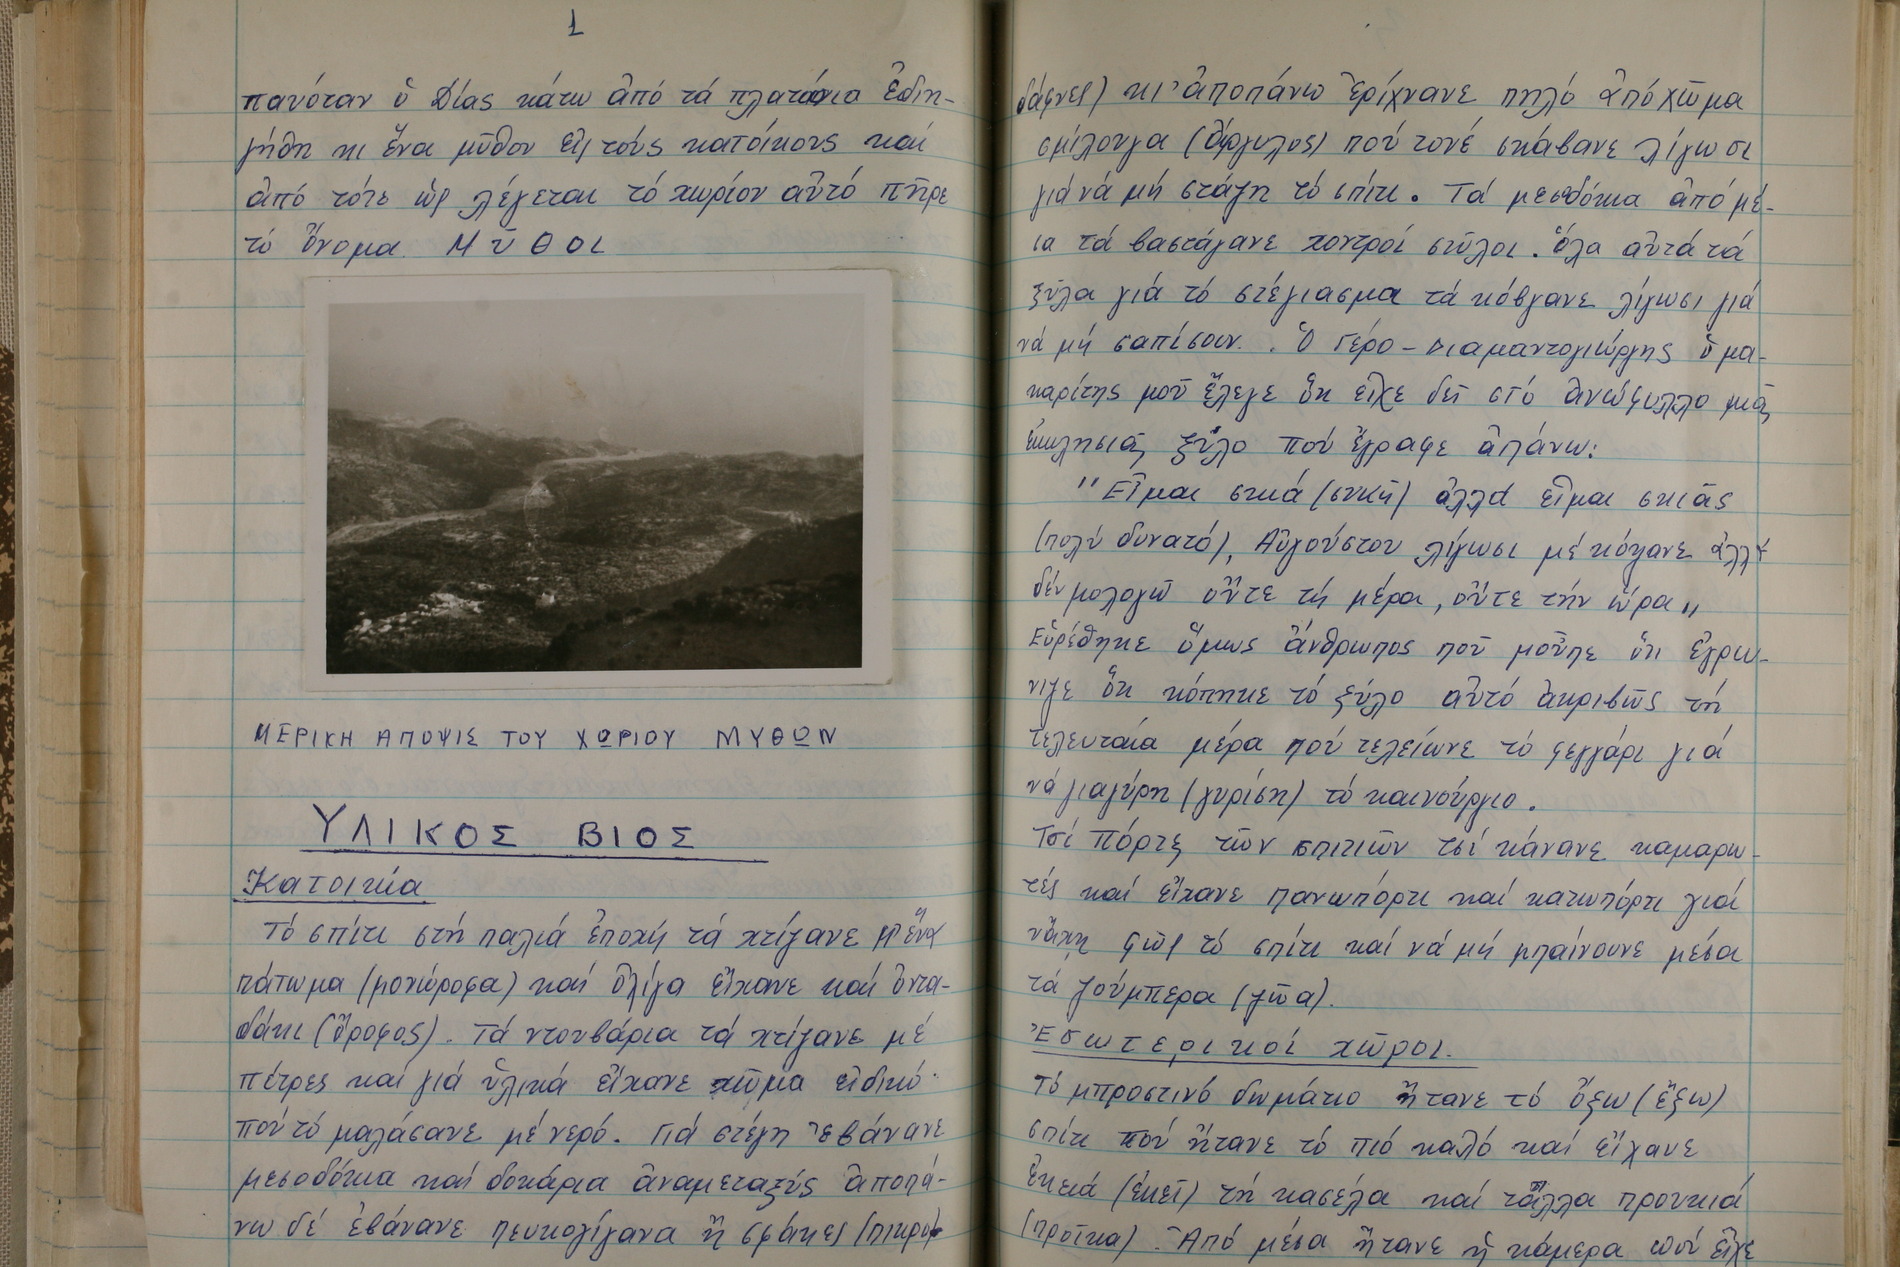 1
πανόταν ὁ Δίας κάτω ἀπό τά πλατάνια ἐδιη-
γήθη κι ἕνα μῦθον εἰς τούς κατοίκους καί
ἀπό τότε ὡς λέγεται τό χωρίον αὐτό πῆρε
τό ὄνομα ΜῦΘΟΙ
ΜΕΡΙΚΗ ΑΠΟΨΙΣ ΤΟΥ ΧΩΡΙΟΥ ΜΥΘΩΝ
ΥΛΙΚΟΣ ΒΙΟΣ
Κατοικία
Τό σπίτι στή παλιά ἐποχή τά χτίζανε μ' ἕνα
πάτωμα (μονώροφα) καί ὀλίγα εἴχανε καί ὀντα-
δάκι (ὄροφος). Τά ντουβάρια τά χτίζανε μέ
πέτρες καί γιά ὑλικά εἴχανε χῶμα εἰδικό
πού τό μαλάσανε μέ νερό. Γιά στέγη ἐβάνανε
μεσοδόκια καί δοκάρια ἀναμεταξύς ἀποπά-
νω δέ ἐβάνανε πευκολίγανα ἤ σφάκες (πικρο
δάφνες) κι' ἀποπάνω ἐρίχνανε πηλό ἀπό χῶμα
σμίλουγα (ἄργυλος) πού τονέ σκάβανε λίγωσι
γιά νά μή στάζη τό σπίτι. Τά μεσοδόκια ἀπό μέ-
σα τά βαστάγανε χοντροί στῦλοι. Ὅλα αὐτά τά
ξύλα γιά τό στέγιασμα τά κόβγανε λίγωσι γιά
νά μή σαπίσουν. Ὁ Γέρο-Διαμαντογιώργης ὁ μα-
καρίτης μοῦ ἔλεγε ὅτι εἶχε δεῖ στό ἀνώφυλλο μιᾶς
ἐκκλησιᾶς ξύλο πού ἔγραφε ἀπάνω:
"Εἶμαι συκιά (συκῆ) ἀλλά εἶμαι σκιᾶς
(πολύ δυνατό), Αὐγούστου λίγωσι μέ κόψανε ἀλλά
δέν μολογῶ οὔτε τή μέρα, οὔτε τήν ὥρα"
Εὑρέθηκε ὅμως ἄνθρωπος πού μοῦπε ὅτι ἐγρώ-
νιζε ὅτι κόπηκε τό ξύλο αὐτό ἀκριβῶς τή
τελευταία μέρα πού τελείωνε τό φεγγάρι γιά
νά γιαγύρη (γυρίση) τό καινούργιο.
Τσί πόρτες τῶν σπιτιῶν τσί κάνανε καμαρω-
τές καί εἴχανε πανωπόρτι καί κατωπόρτι γιά
νἄχη φῶς τό σπίτι καί νά μή μπαίνουνε μέσα
τά ζούμπερα (ζῶα).
Ἐσωτερικοί χῶροι.
Τό μπροστινό δωμάτιο ἤτανε τό ὄξω (ἔξω)
σπίτι πού ἤτανε τό πιό καλό καί εἴχανε
ἐκειά (ἐκεῖ) τή κασέλα καί τἆλλα προυκιά
(προῖκα). Ἀπό μέσα ἤτανε ἡ κάμερα πού εἶχε